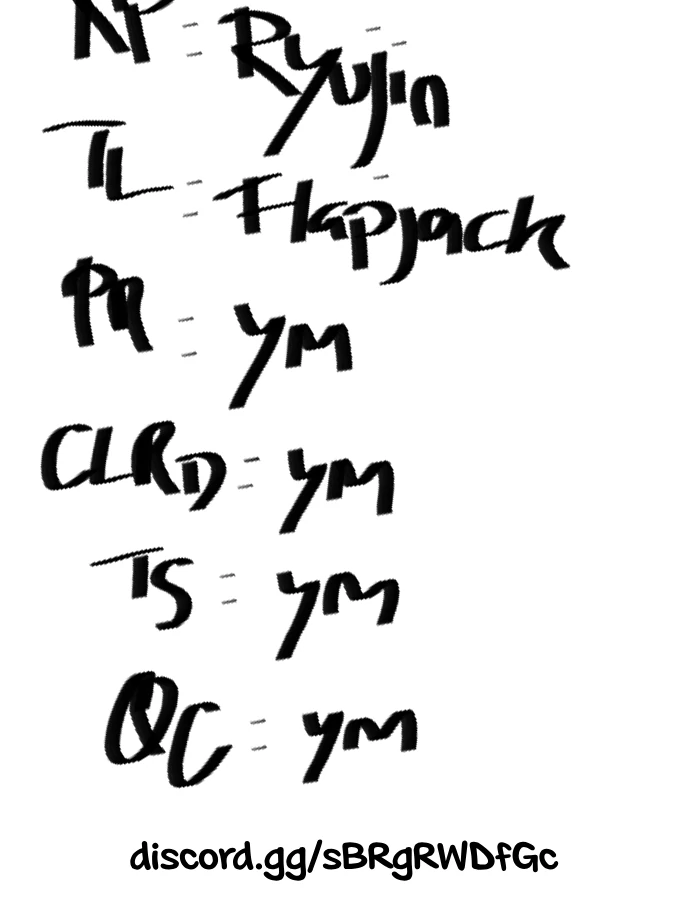 RP = Ryujin
TL = Flapjack
PR = YM
CLRD = YM
TS = YM
QC = YM
discord.gg/sBRgRWDfGc